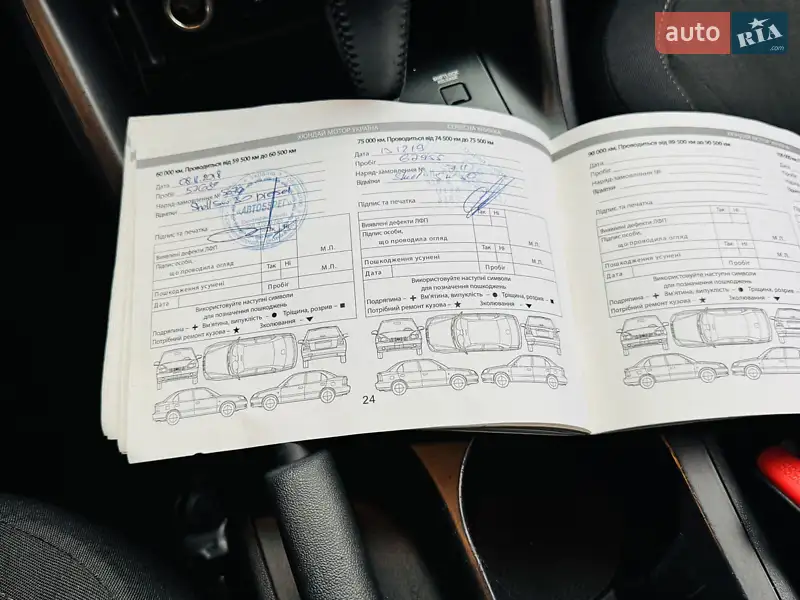 auto RIA .com
SHIFT LOCK RELEASE
ХЮНДАЙ МОТОР УКРАЇНА
60 000 км. Проводиться від 59 500 км до 60 500 км
Дата
Пробіг
Наряд-замовлення №
Відмітки
АВТОЗВІТ
Підпис та печатка
Так Ні
Виявлені дефекти ЛФП
Підпис особи,
що проводила огляд
М.П.
Так Ні
Пошкодження усунені
Дата
Пробіг
Використовуйте наступні символи
для позначення пошкоджень
Подряпина - + Вм'ятина, випуклість - ● Тріщина, розрив - ■
Потрібний ремонт кузова - ★ Зколювання - ▼
СЕРВІСНА КНИЖКА
75 000 км. Проводиться від 74 500 км до 75 500 км
Дата 13.12.19
Пробіг
Наряд-замовлення №
Відмітки Shell
Підпис та печатка
Так Ні
Виявлені дефекти ЛФП
Підпис особи,
що проводила огляд
М.П.
Так Ні
Пошкодження усунені
Дата
Пробіг
Використовуйте наступні символи
для позначення пошкоджень
Подряпина - + Вм'ятина, випуклість - ● Тріщина, розрив - ■
Потрібний ремонт кузова - ★ Зколювання - ▼
24
ХЮНДАЙ МОТОР УКРАЇНА
90 000 км. Проводиться від 89 500 км до 90 500 км
Дата
Пробіг
Наряд-замовлення №
Відмітки
Підпис та печатка
Так Ні
Виявлені дефекти ЛФП
Підпис особи,
що проводила огляд
М.П.
Так Ні
Пошкодження усунені
Дата
Пробіг
Використовуйте наступні символи
для позначення пошкоджень
Подряпина - + Вм'ятина, випуклість - ● Тріщина, розрив - ■
Потрібний ремонт кузова - ★ Зколювання - ▼